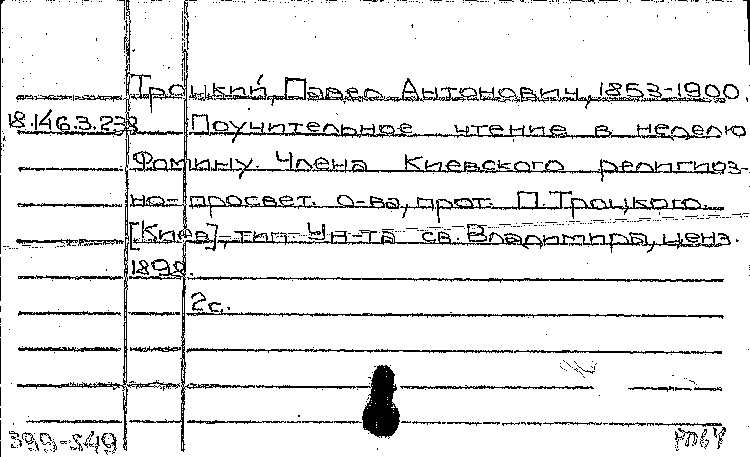 Троцкий, Павел Антонович, 1853-1900.
18.146.3.238 Поучительное чтение в неделю
Фомину. Члена Киевского религиоз-
но-просвет. о-ва, прот. П. Троцкого.
[Киев], тип. Ун-та св. Владимира, ценз.
1890.
2с.
399-549